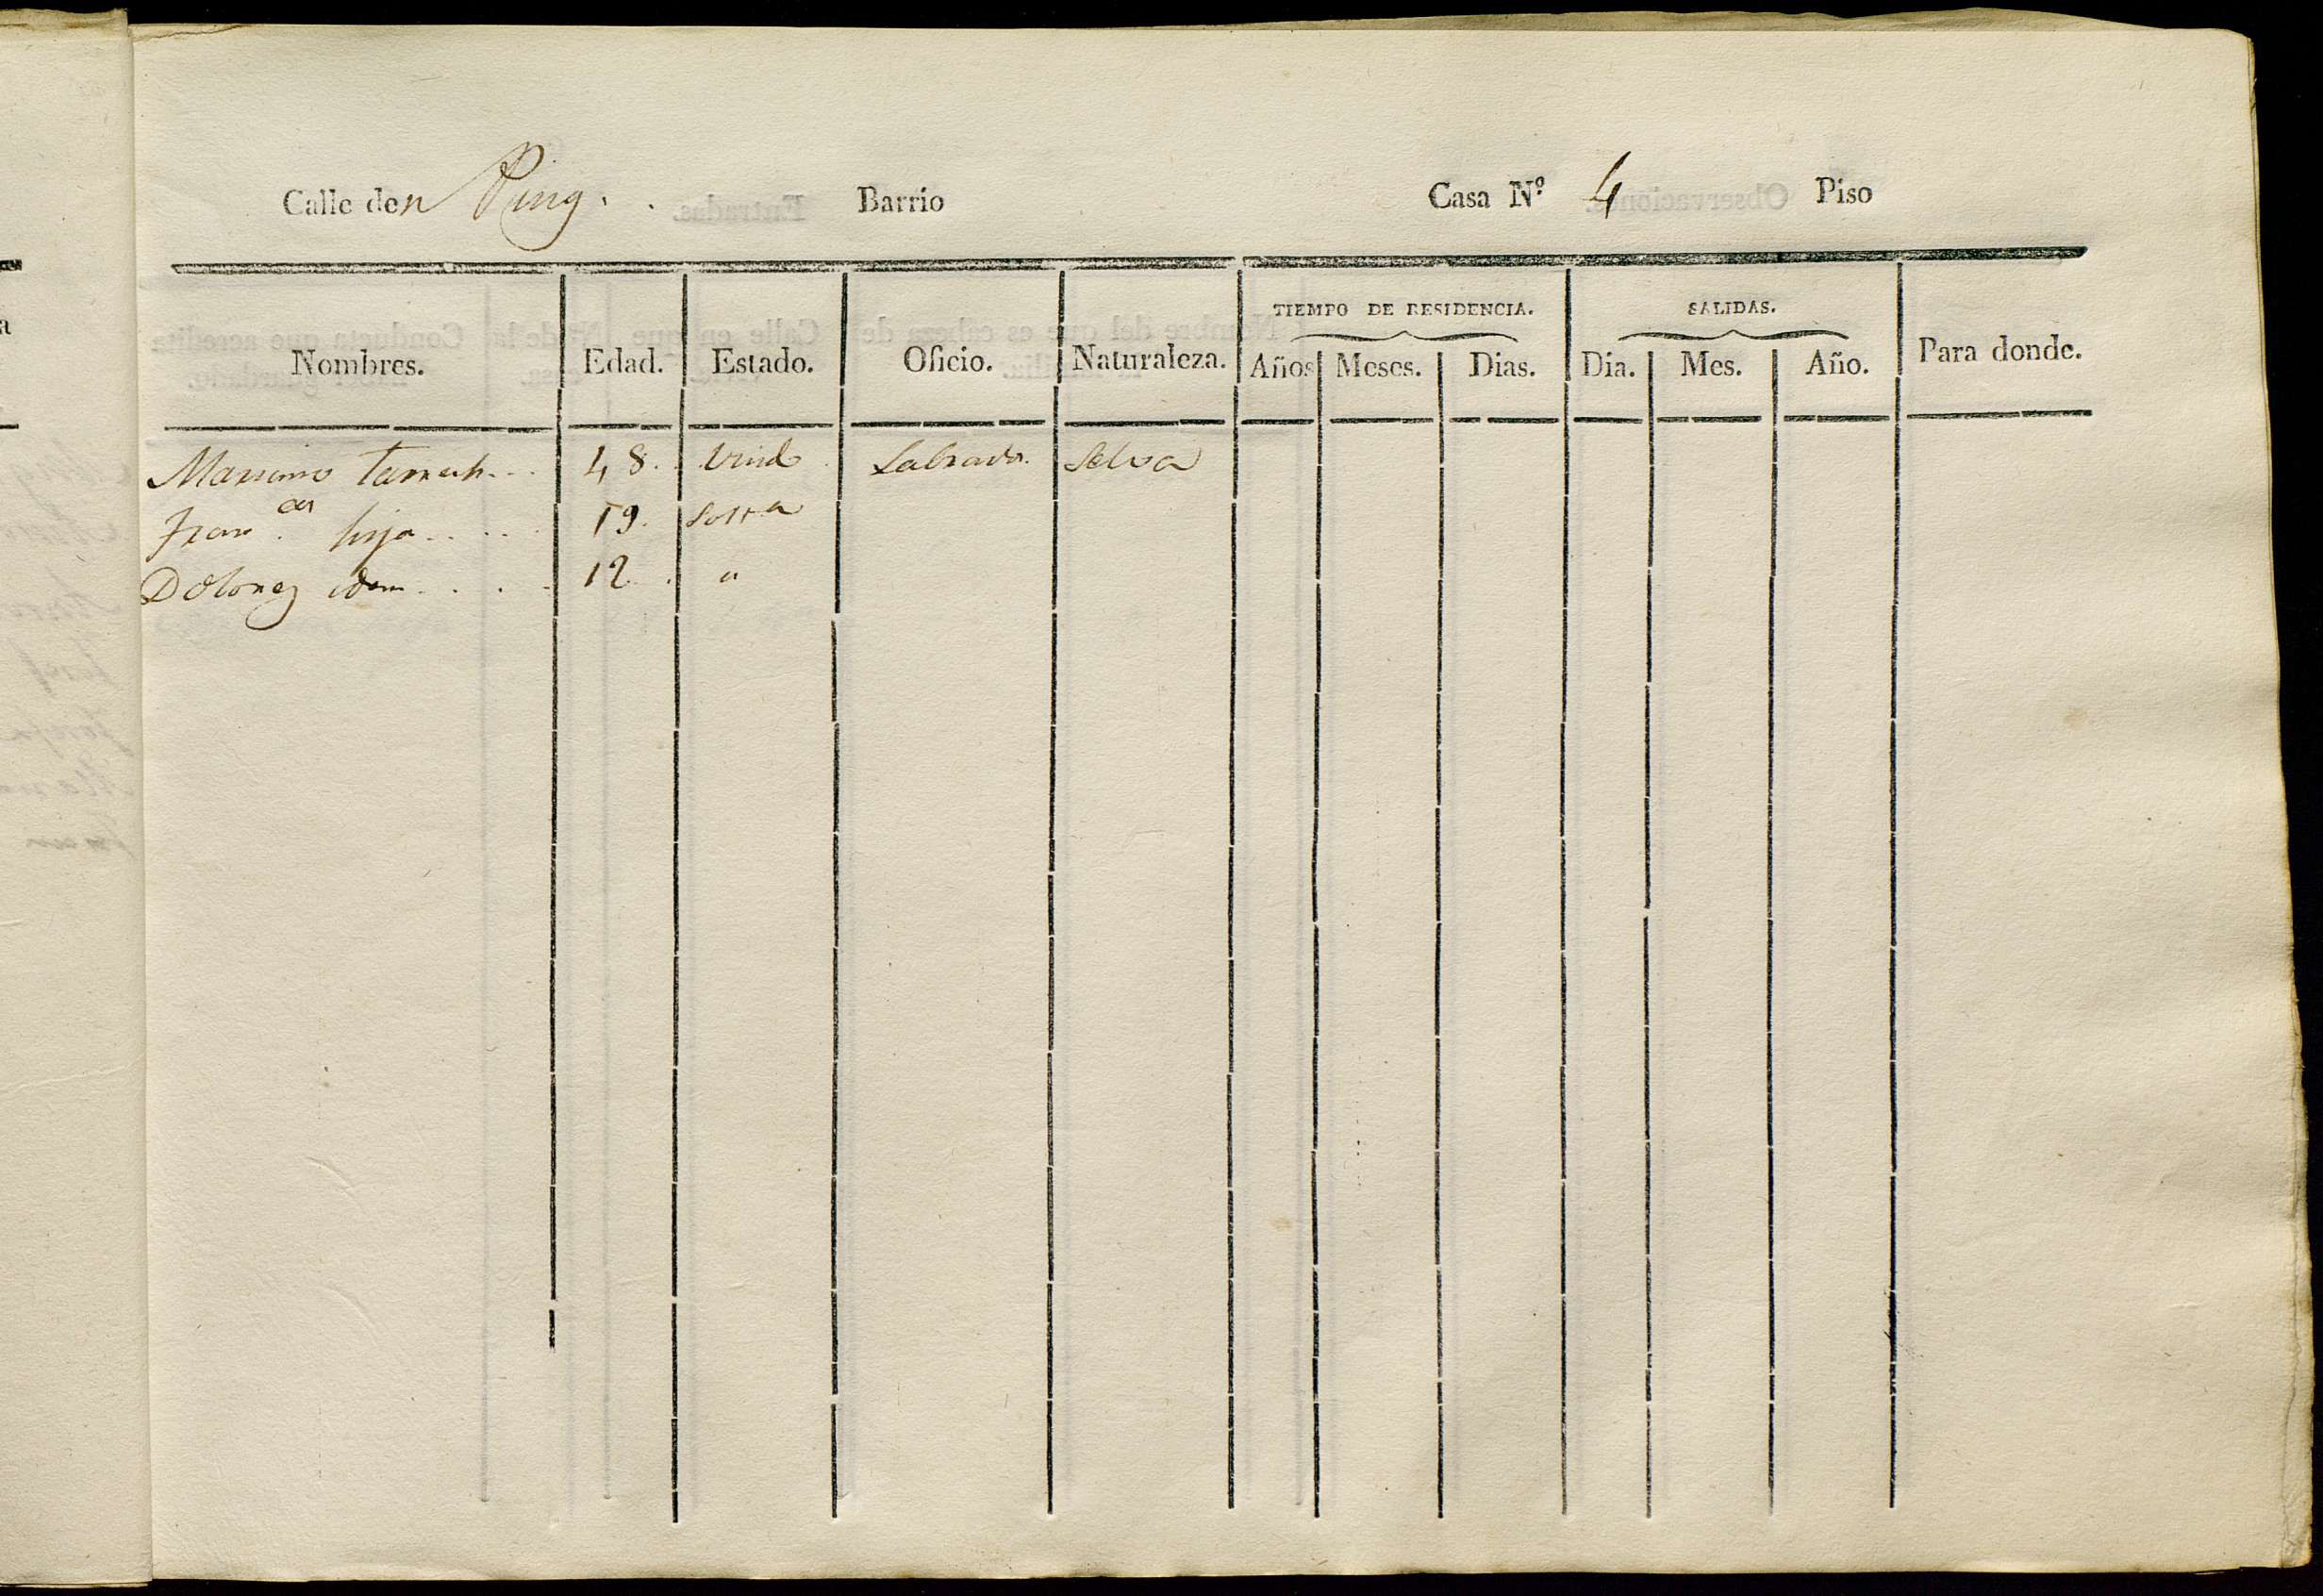 Calle den Puig. Barrio Casa Nº 4 Piso
Nombres. Edad. Estado. Oficio. Naturaleza. TIEMPO DE RESIDENCIA. SALIDAS. Para donde.
Años Meses. Dias. Dia. Mes. Año.
48. Viud Labrador Selva
Fran.ca hija 19. Solta
Dolores idem 12 "